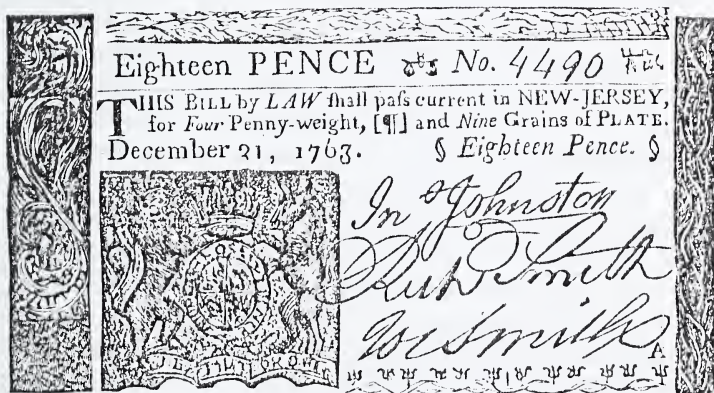 Eighteen PENCE No. 4490
THIS BILL by LAW ſhall paſs current in NEW-JERSEY,
for Four Penny-weight, [¶] and Nine Grains of PLATE.
December 31, 1763. § Eighteen Pence. §
Jnº Johnston
Richd Smith
Smith
A